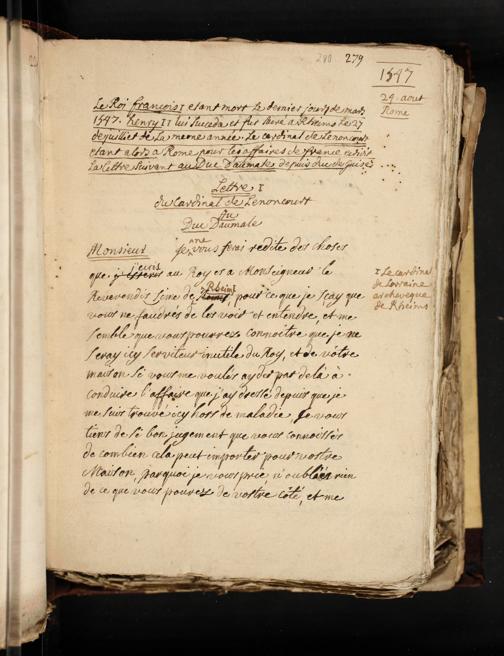 280 279
1547
24. aout
Rome
Le Roi françois I etant mort le dernier jour de mars
1547. henry II lui succeda et fut sacré a Rheims le 27
de juillet de la meme année. Le Cardinal de Lenoncourt
etant alors a Rome pour les affaires de france ecrivit
la lettre suivant au Duc Daumale depuis duc de Guise
Lettre I
du Cardinal de Lenoncourt
au
Duc Daumale
Monsieur Je ne vous ferai redite des choses
que j'ecris au Roy et a Monseigneur le
Reverendissime de Rheims, pour ce que je scay que
vous ne faudres de les voir et entendre, et me
semble que vous pourrez connoitre que je ne
seray icy serviteur inutile du Roy, et de vôtre
maison si vous me voulés ayder par delà à
conduire l'affaire que j'ay dressé depuis que je
me suis trouvé icy hors de maladie, Je vous
tiens de si bon jugement que vous connoissés
de combien cela peut importer pour vostre
Maison, parquoi je vous prie n'oublier rien
de ce que vous pourez de vostre côté, et me
I Le cardinal
de Lorraine
archeveque
de Rheims